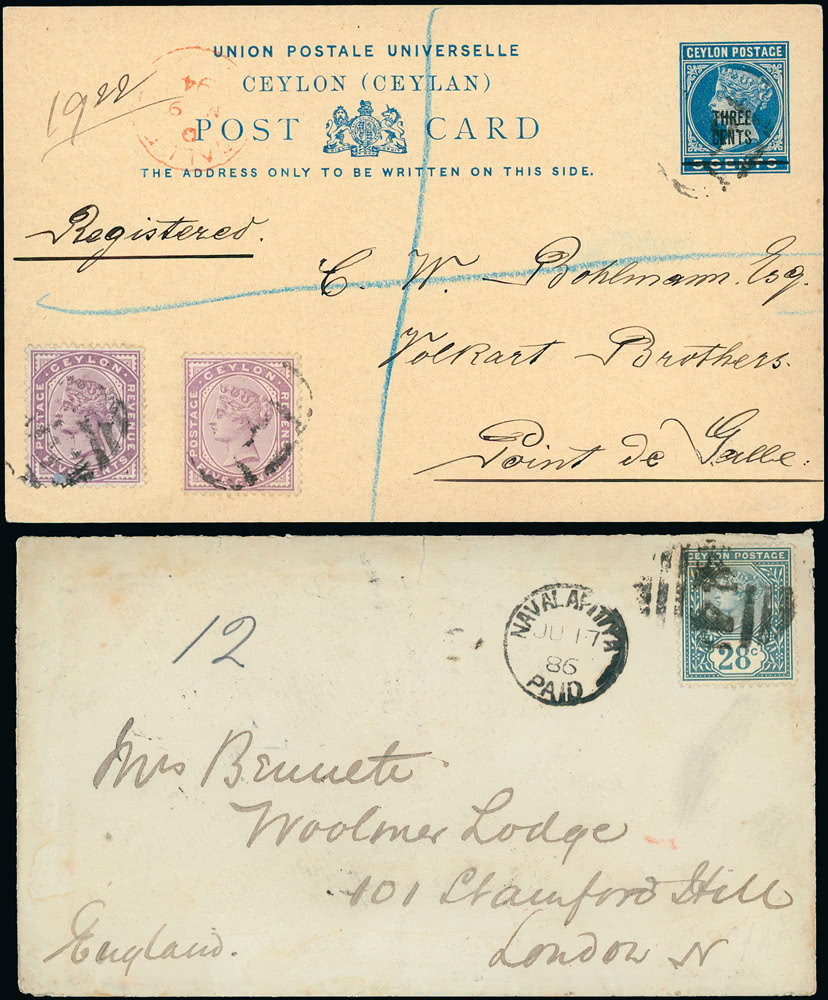 UNION POSTALE UNIVERSELLE
CEYLON (CEYLAN)
POST CARD
THE ADDRESS ONLY TO BE WRITTEN ON THIS SIDE.
CEYLON POSTAGE
THREE
CENTS
19 22
94
9
Registered.
C. W. Bohlmann. Esq.
Volkart Brothers.
Point de Galle.
POSTAGE · CEYLON · REVENUE
POSTAGE · CEYLON · REVENUE
CEYLON POSTAGE
28c
NAVALAPITIYA
JU 17
86
PAID
12
Mrs Bennett
Woolmer Lodge
101 Stamford Hill
London N
England.